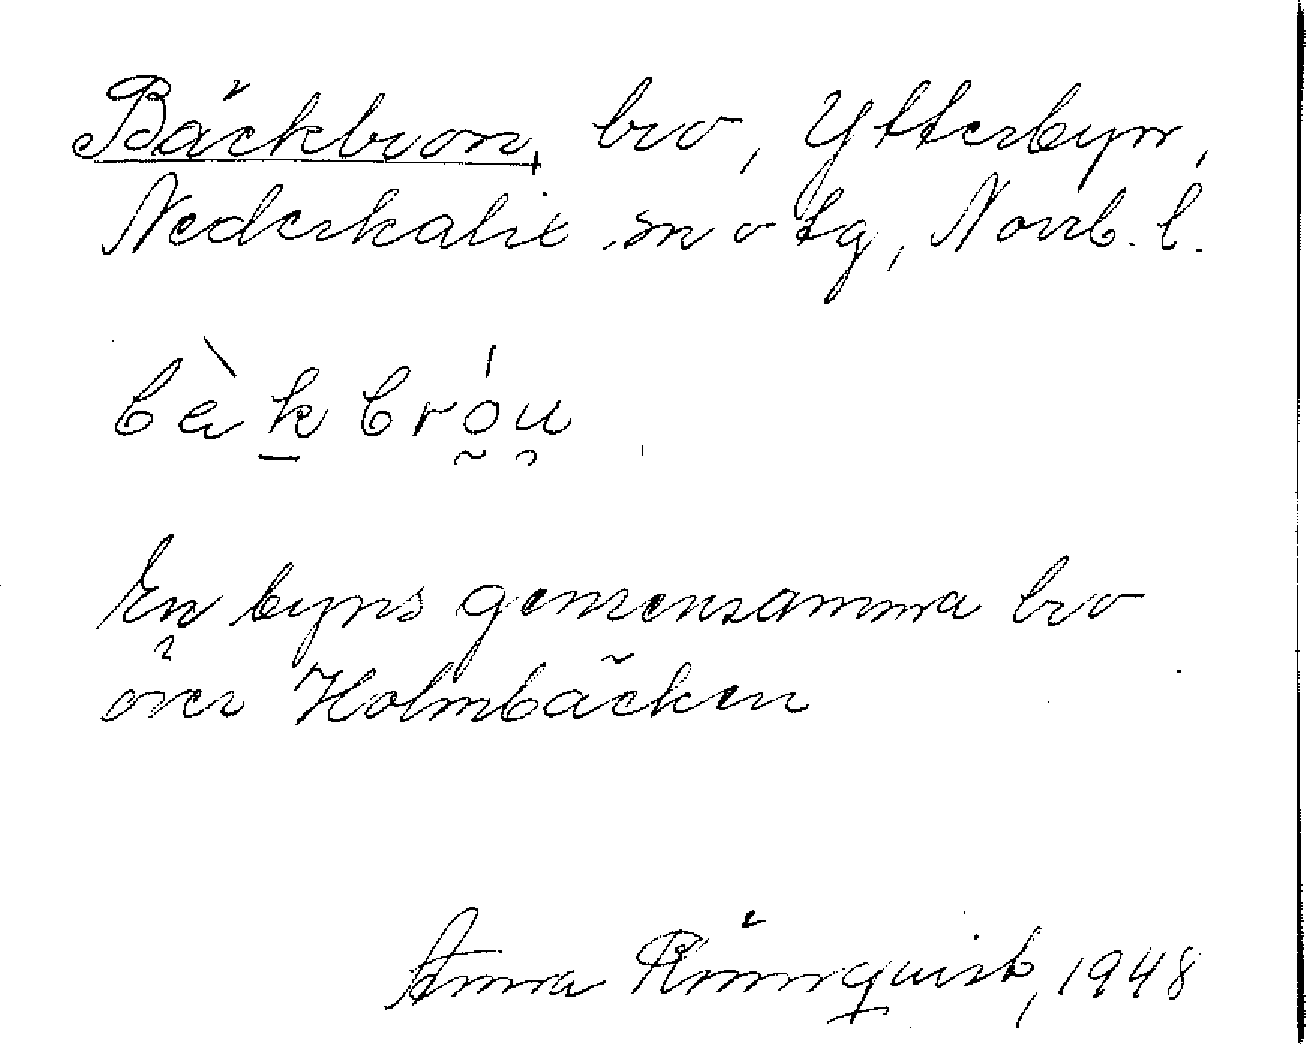 Bäckbron, bro, Ytterbyn,
Nederkalix sn o tg, Norrb. l.
bὲk̲bróu
En byns gemensamma bro
över Holmbäcken
Anna Rönnquist, 1948